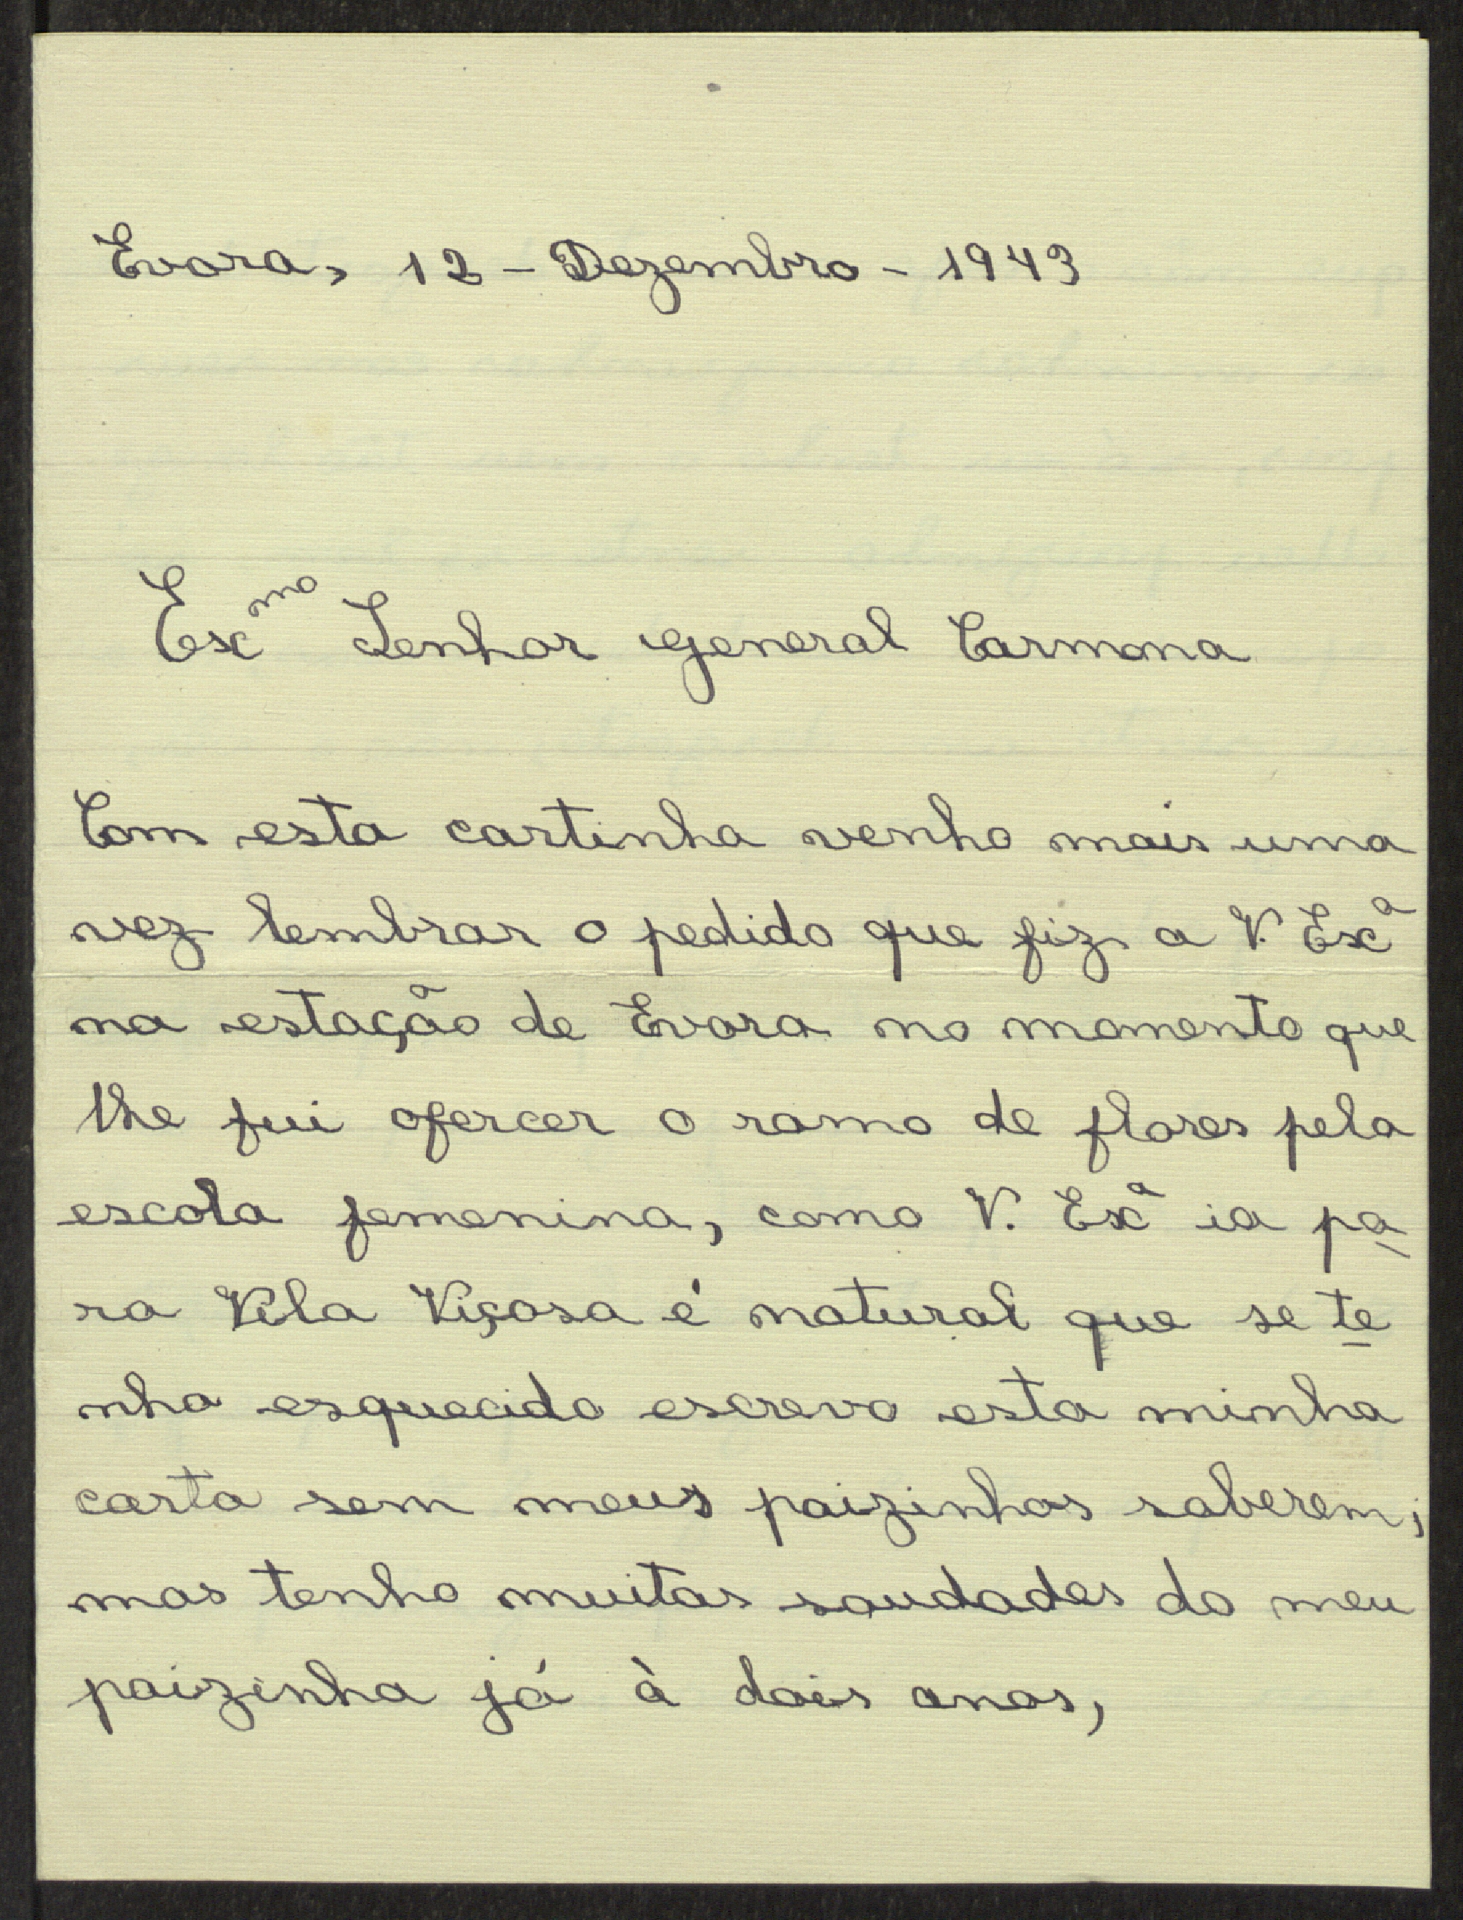 Evora, 12 - Dezembro - 1943
Exmo Senhor general Carmona
Com esta cartinha venho mais uma
vez lembrar o pedido que fiz a V. Exa
na estação de Evora no momento que
lhe fui ofercer o ramo de flores pela
escola femenina, como V. Exa ia pa-
ra Vila Viçosa é natural que se te-
nha esquecido escrevo esta minha
carta sem meus paizinhos saberem;
mas tenho muitas saudades do meu
paizinho já à dois anos,